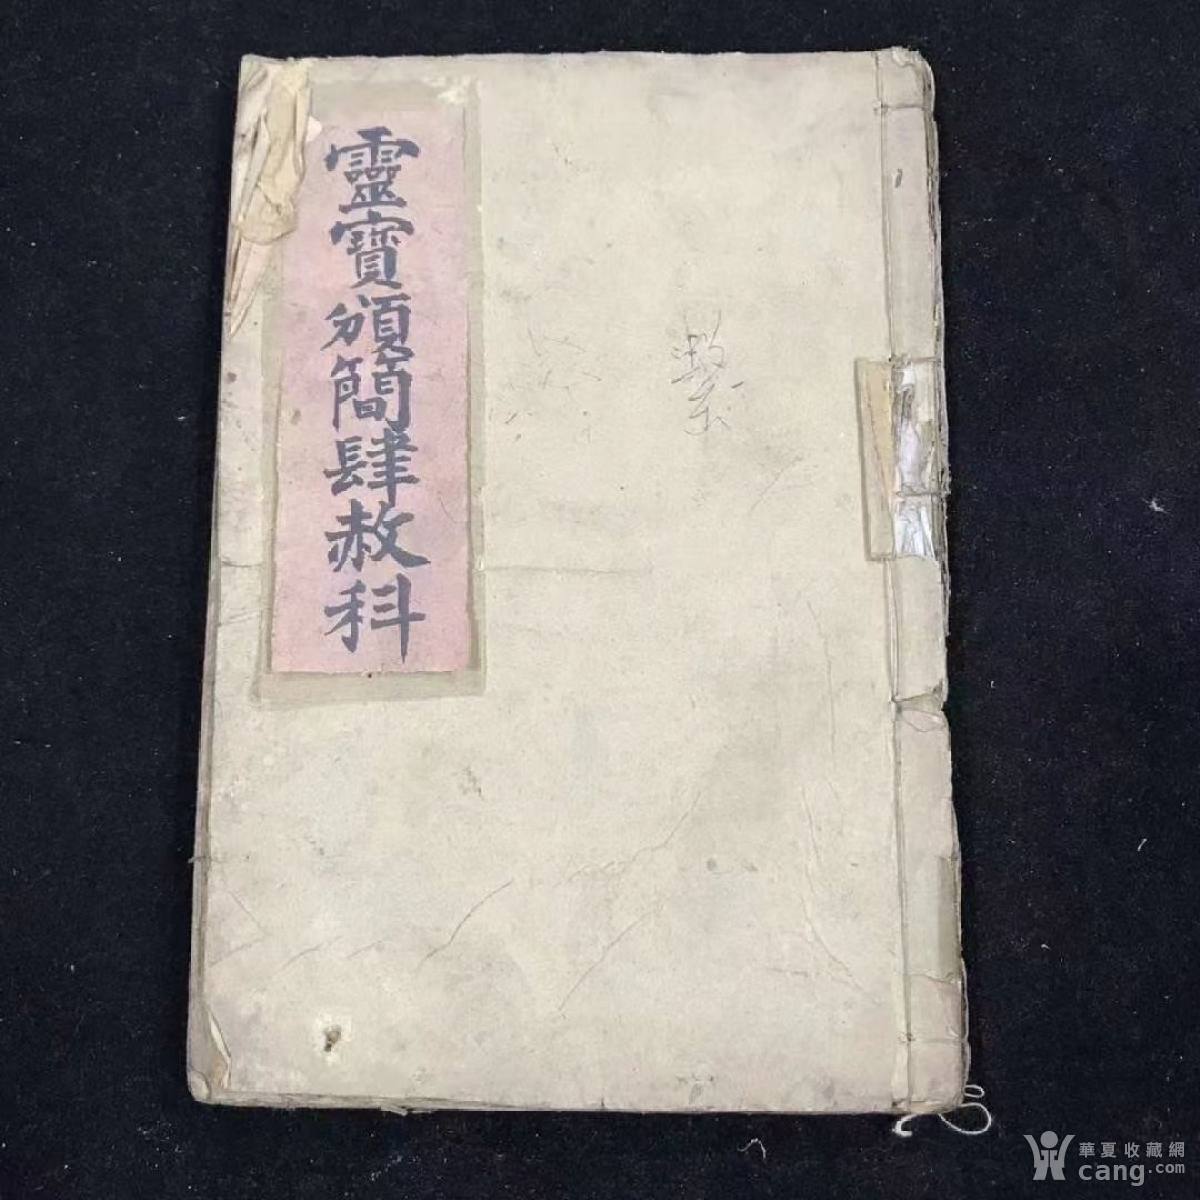 靈寳頒簡肆赦科
華夏收藏網
cang.com